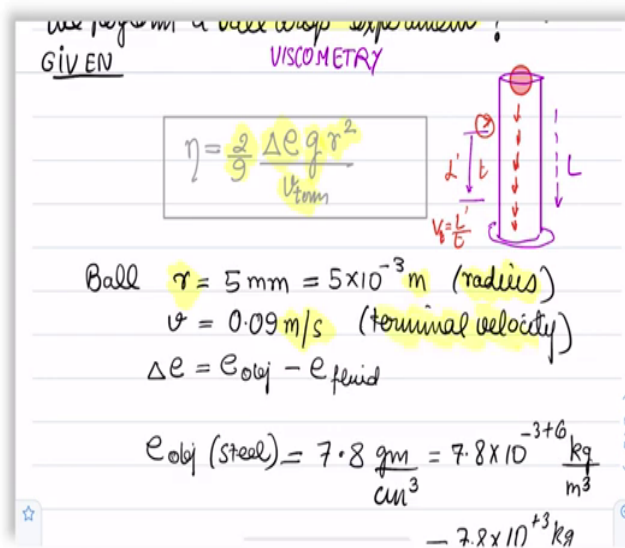 we perform a ball drop experiment?
GIVEN
VISCOMETRY
η = 2/9 Δρ g r² / v_term
L' t
L
V_t = L'/t
Ball r = 5 mm = 5×10⁻³ m (radius)
v = 0.09 m/s (terminal velocity)
Δρ = ρ_obj − ρ_fluid
ρ_obj (steel) = 7.8 gm/cm³ = 7.8×10⁻³⁺⁶ kg/m³
= 7.8×10⁺³ kg